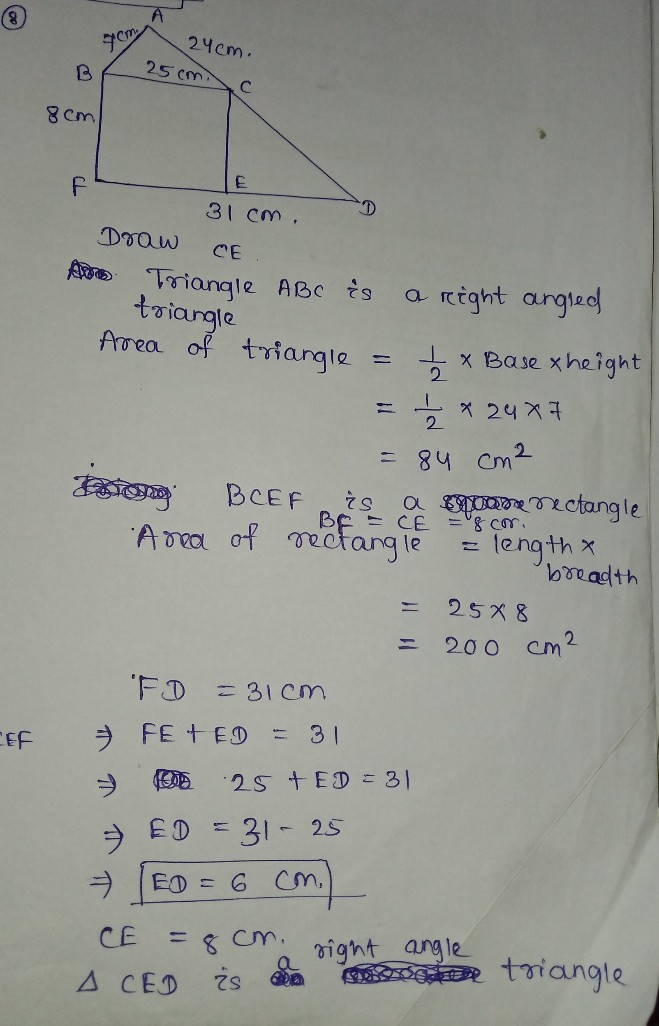 8
A
7cm
24cm.
B
25 cm.
C
8cm
F
E
D
31 cm.
Draw CE
Triangle ABC is a right angled
triangle
Area of triangle = 1/2 x Base x height
= 1/2 x 24 x 7
= 84 cm²
BCEF is a rectangle
BF = CE = 8 cm.
Area of rectangle = length x
breadth
= 25 x 8
= 200 cm²
FD = 31 cm
CEF
⇒ FE + ED = 31
⇒ 25 + ED = 31
⇒ ED = 31 - 25
⇒ ED = 6 cm.
CE = 8 cm.
right angle
Δ CED is a triangle